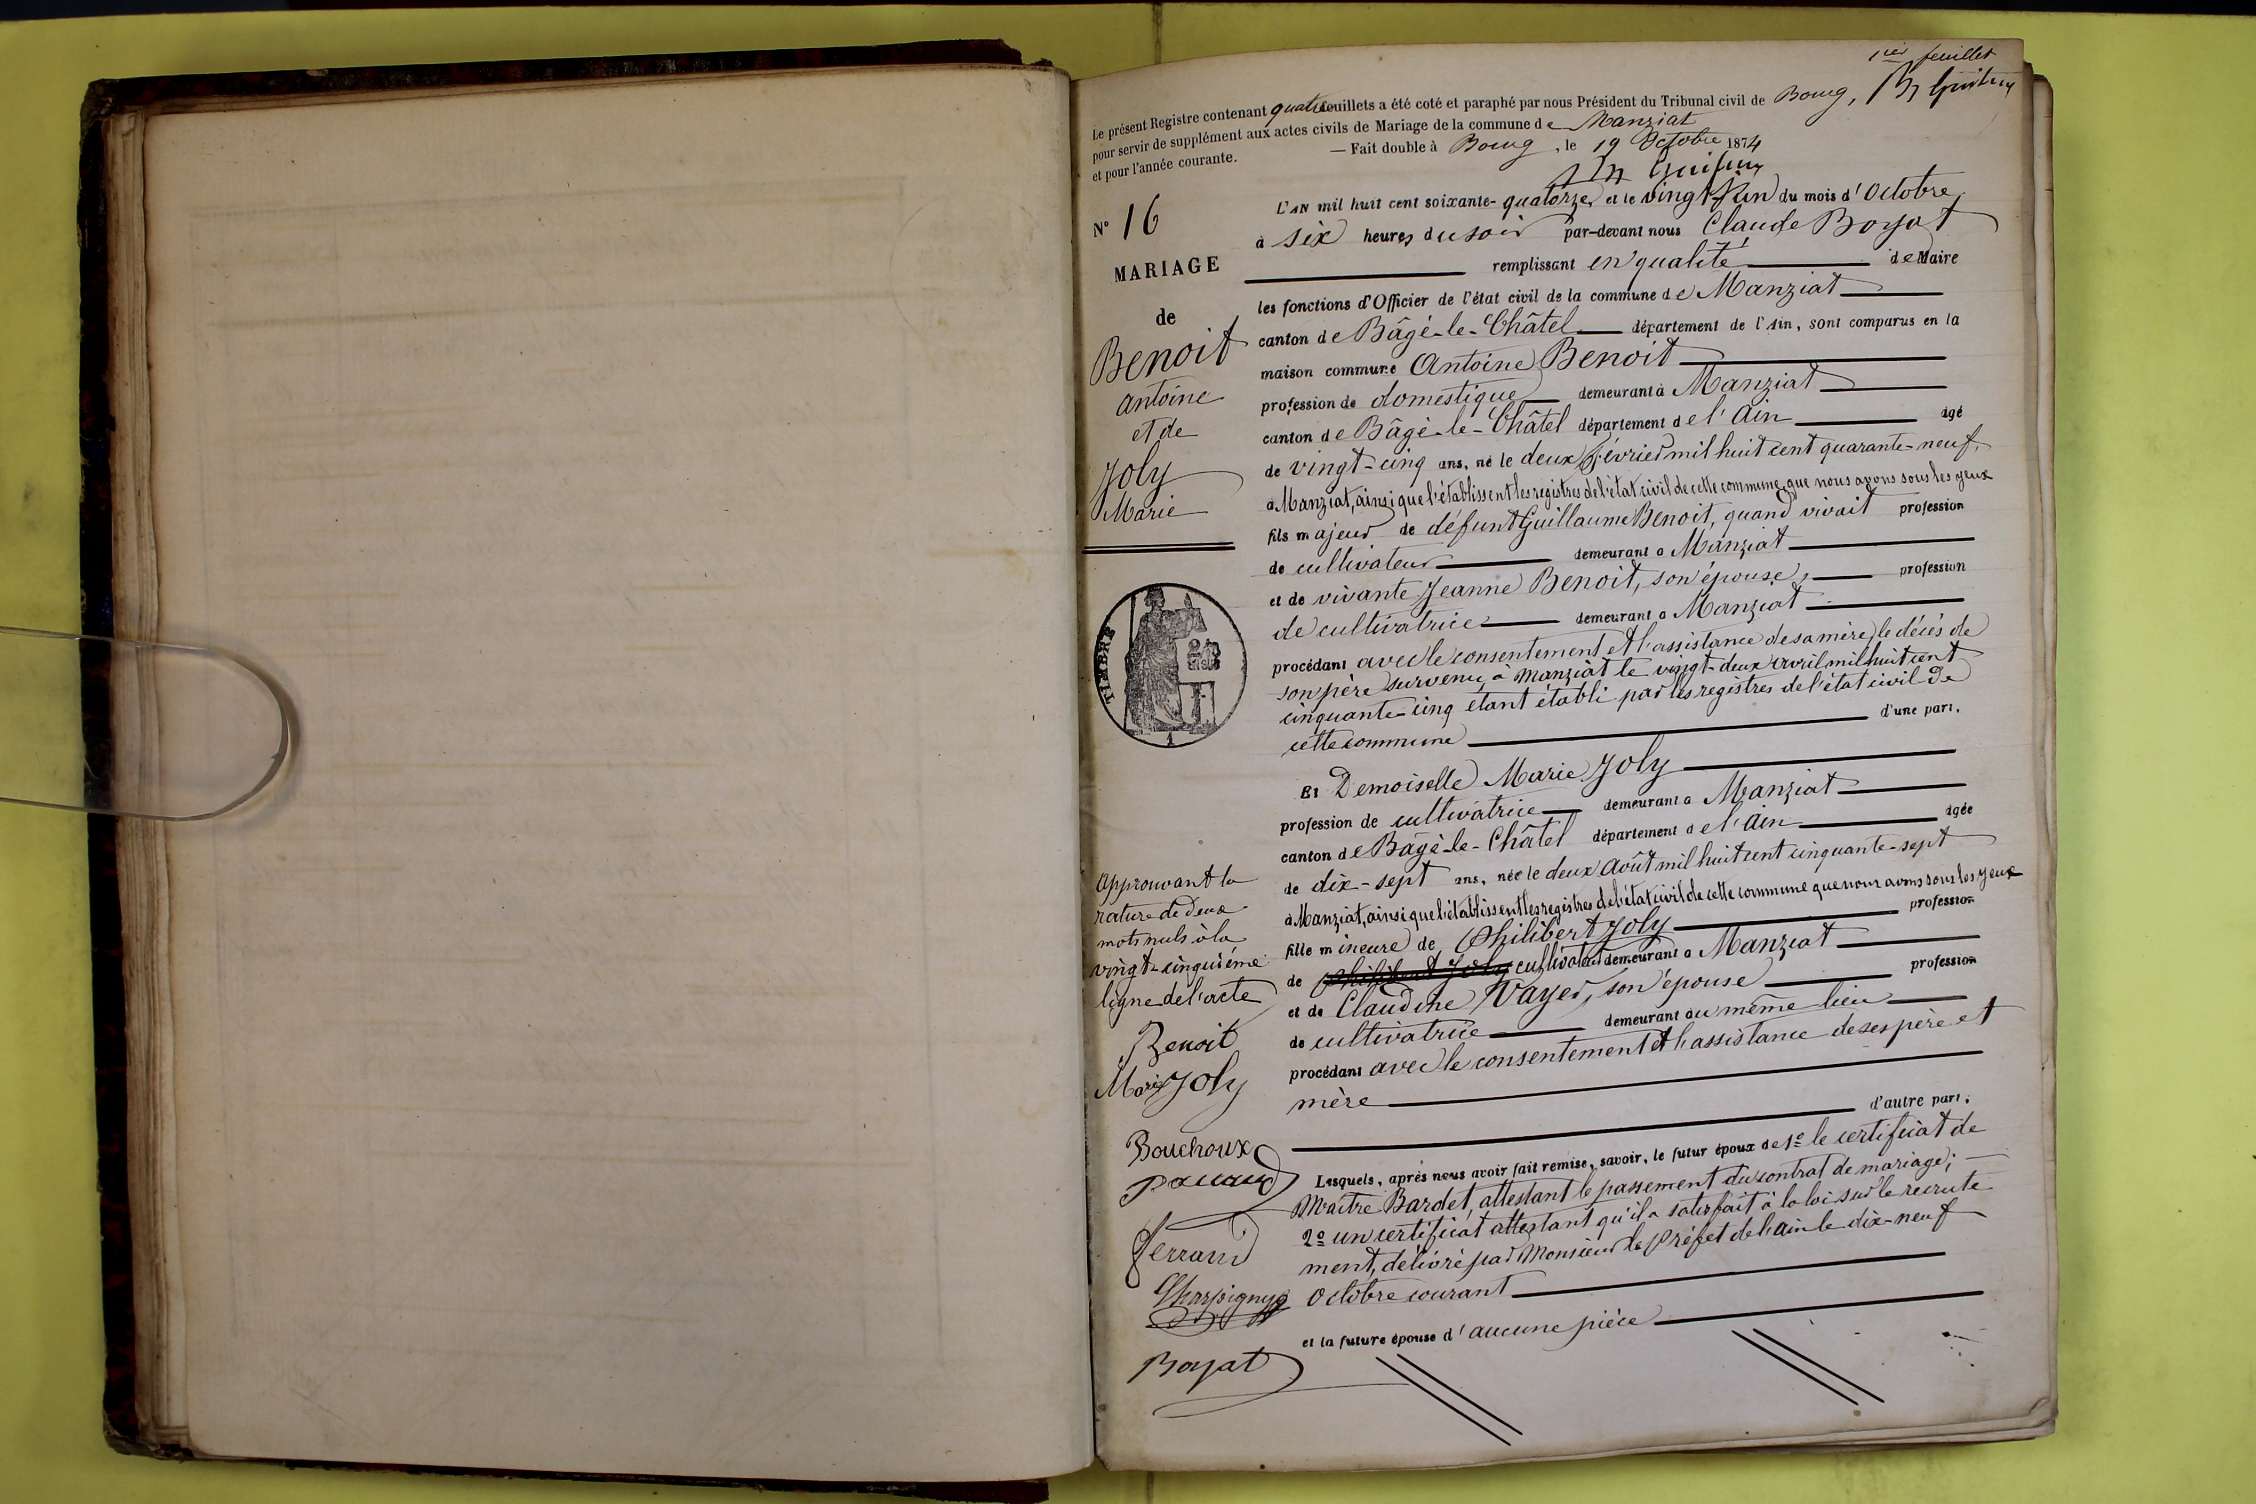 1ier feuillet
Le présent Registre contenant quatre feuillets a été coté et paraphé par nous Président du Tribunal civil de Bourg,
pour servir de supplément aux actes civils de Mariage de la commune de Manziat
et pour l'année courante. — Fait double à Bourg, le 19 Octobre 1874
N° 16
MARIAGE
de
Benoit
Antoine
et de
Joly
Marie
TIMBRE
L'AN mil huit cent soixante-quatorze, et le vingt-un du mois d'Octobre,
à six heures du soir par-devant nous Claude Boyat
remplissant en qualité de Maire
les fonctions d'Officier de l'état civil de la commune de Manziat
canton de Bâgé-le-Châtel département de l'Ain, sont comparus en la
maison commune Antoine Benoit
profession de domestique demeurant à Manziat
canton de Bâgé-le-Châtel département de l'Ain âgé
de vingt-cinq ans, né le deux février mil huit cent quarante-neuf,
à Manziat, ainsi que l'établissent les registres de l'état civil de cette commune, que nous avons sous les yeux
fils majeur de défunt Guillaume Benoit, quand vivait profession
de cultivateur demeurant à Manziat
et de vivante Jeanne Benoit, son épouse, profession
de cultivatrice demeurant à Manziat
procédant avec le consentement et l'assistance de sa mère, le décès de
son père survenu à Manziat le vingt-deux avril mil huit cent
cinquante-cinq étant établi par les registres de l'état civil de
cette commune d'une part,
Et Demoiselle Marie Joly
profession de cultivatrice demeurant à Manziat
canton de Bâgé-le-Châtel département de l'Ain âgée
de dix-sept ans, née le deux Août mil huit cent cinquante-sept
à Manziat, ainsi que l'établissent les registres de l'état civil de cette commune que nous avons sous les yeux
fille mineure de Philibert Joly profession
de Philibert Joly cultivateur demeurant à Manziat
et de Claudine Vayer, son épouse profession
de cultivatrice demeurant au même lieu
procédant avec le consentement et l'assistance de ses père et
mère
d'autre part.
Lesquels, après nous avoir fait remise, savoir, le futur époux de 1° le certificat de
Maître Bardet, attestant le passement du contrat de mariage;
2° un certificat attestant qu'il a satisfait à la loi sur le recrute
ment, délivré par Monsieur le Préfet de l'Ain le dix-neuf
Octobre courant
et la future épouse d'aucune pièce
Approuvant la
rature de deux
mots nuls à la
vingt-cinquième
ligne de l'acte
Benoit
Marie Joly
Bouchoux
Ferrand
Charpigny
Boyat